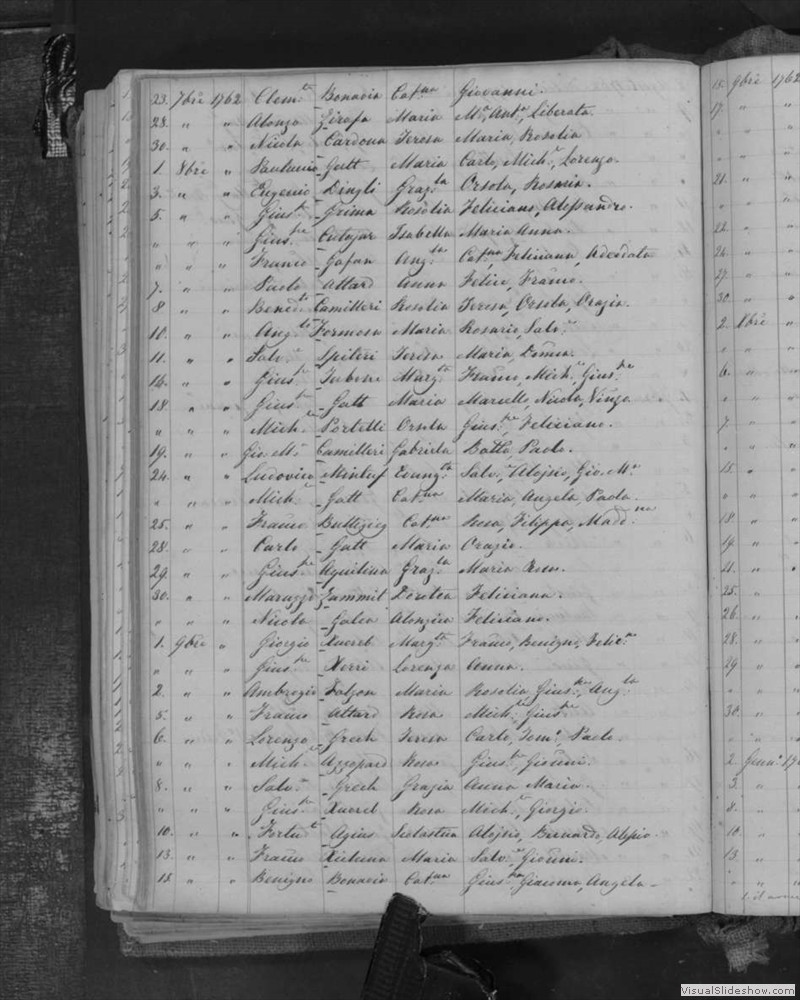 23. 7bre 1762 Clem.te Bonavia Cat.na Giovanni.
28. " " Alonzo Zirafa Maria M.a Ant.a Liberata.
30. " " Nicola Cardona Teresa Maria, Rosolia
1. 8bre " Gatt Maria Carlo, Mich.e, Lorenzo.
3. " " Eugenio Dingli Graz.la Orsola, Rosaria.
5. " " Gius.e Grima Rosolia Feliciano, Alessandro.
" " " Gius.pe Cutajar Isabella Maria Anna.
" " " Franco Gafan Ang.la Cat.na Feliciana, Adeodata
7. " " Paolo Attard Anna Felice, Franco.
8. " " Bened.to Camilleri Rosolia Teresa, Orsola, Orazia.
10. " " Ang.lo Formosa Maria Rosario, Salv.re
11. " " Salv.re Spiteri Teresa Maria,
14. " " Gius.e Marg.ta Franco, Mich.e, Gius.pe
18. " " Gius.e Gatt Maria Marcello, Nicola, Vinzo.
" " " Mich.le Portelli Orsola Gius.pe, Feliciano.
19. " " Gio M.a Camilleri Gabriela Batta, Paolo.
24. " " Ludovico Mintuf Evang.ta Salv.re, Alojsio, Gio. M.a
" " " Mich.e Gatt Cat.na Maria, Angela, Paola.
25. " " Franco Buttigieg Cat.na Rosa, Filippa, Madd.na
28. " " Carlo Gatt Maria Orazio.
29. " " Gius.pe Aquilina Graz.la Maria Rosa.
30. " " Maruzzo Zammit Dorotea Feliciana.
" " " Nicola Galea Alonzica Feliciano.
1. 9bre " Giorgio Xuereb Marg.ta Franco, Benigno, Felic.no
" " " Gius.pe Xerri Lorenza Anna.
2. " " Ambrogio Falzon Maria Rosolia, Gius.pe, Ang.la
5. " " Franco Attard Rosa Mich.e, Gius.pe
6. " " Lorenzo Grech Teresa Carlo, Dom.o, Paolo.
" " " Mich.e Azzopard Rosa Gius.e, Gioanni.
8. " " Salv.re Grech Grazia Anna Maria.
" " " Gius.pe Xuereb Rosa Mich.e, Giorgio.
10. " " Fortun.to Agius Sebastna Alojsio, Bernardo, Alessio.
13. " " Franco Xicluna Maria Salv.re, Gioanni.
15. " " Benigno Bonavia Cat.na Gius.pa, Giacoma, Angela
15. 9bre 1762
17. " "
" "
" "
21. " "
" "
22. "
24. "
27. "
30. "
2. Xbre "
" "
6. "
" "
7. "
" "
15. "
" "
18. "
19. "
21. "
25. "
26. "
28. "
29 "
" "
30. "
" "
2. Genn.o 17
3. "
8. "
10. "
13. "
" "
VisualSlideshow.com